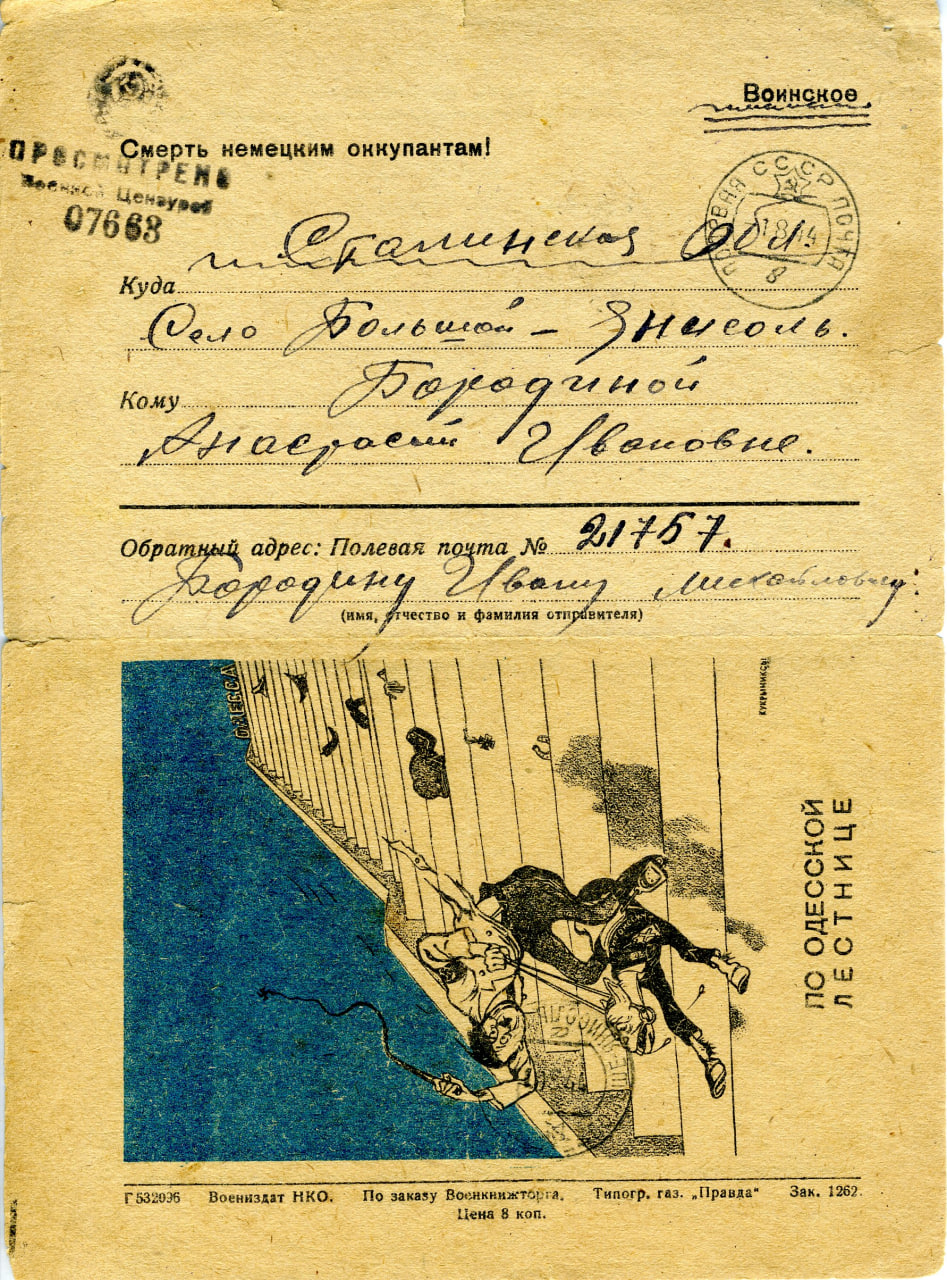 Воинское
Смерть немецким оккупантам!
ПРОСМОТРЕНО
Военной Цензурой
07663
ПОЛЕВАЯ ПОЧТА СССР
8
Куда Сталинская обл.
Село Большой – Янисоль.
Кому Бородиной
Анастасии Ивановне.
Обратный адрес: Полевая почта № 21757.
Бородину Ивану Михайловичу.
(имя, отчество и фамилия отправителя)
ОДЕССА
КУКРЫНИКСЫ
ПО ОДЕССКОЙ
ЛЕСТНИЦЕ
Г532096 Воениздат НКО. По заказу Военкнижторга. Типогр. газ. „Правда“ Зак. 1262.
Цена 8 коп.